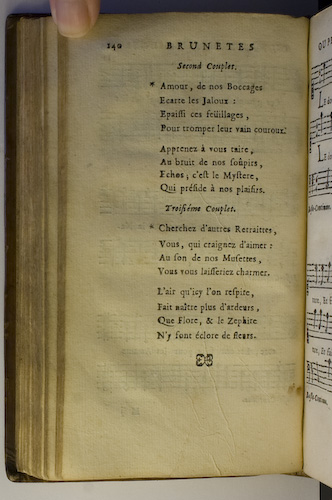 240 BRUNETES
Second Couplet.
* Amour, de nos Boccages
Ecarte les Jaloux :
Epaissi ces feüillages,
Pour tromper leur vain couroux.
Apprenez à vous taire,
Au bruit de nos soûpirs,
Echos, c'est le Mystere,
Qui préside à nos plaisirs.
Troisiéme Couplet.
* Cherchez d'autres Retraittes,
Vous, qui craignez d'aimer :
Au son de nos Musettes,
Vous vous laisseriez charmer.
L'air qu'icy l'on respire,
Fait naître plus d'ardeurs,
Que Flore, & le Zephire
N'y font éclore de fleurs.
Basse-Continue.
Basse-Continue.